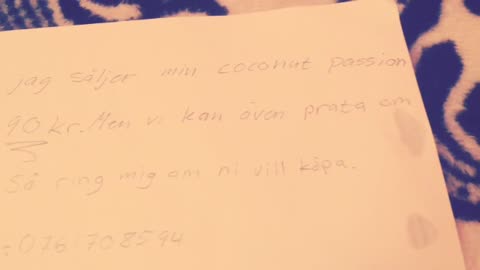 jag säljer min coconut passion
90 kr. Men vi kan även prata om
Så ring mig om ni vill köpa.
: 0761708594